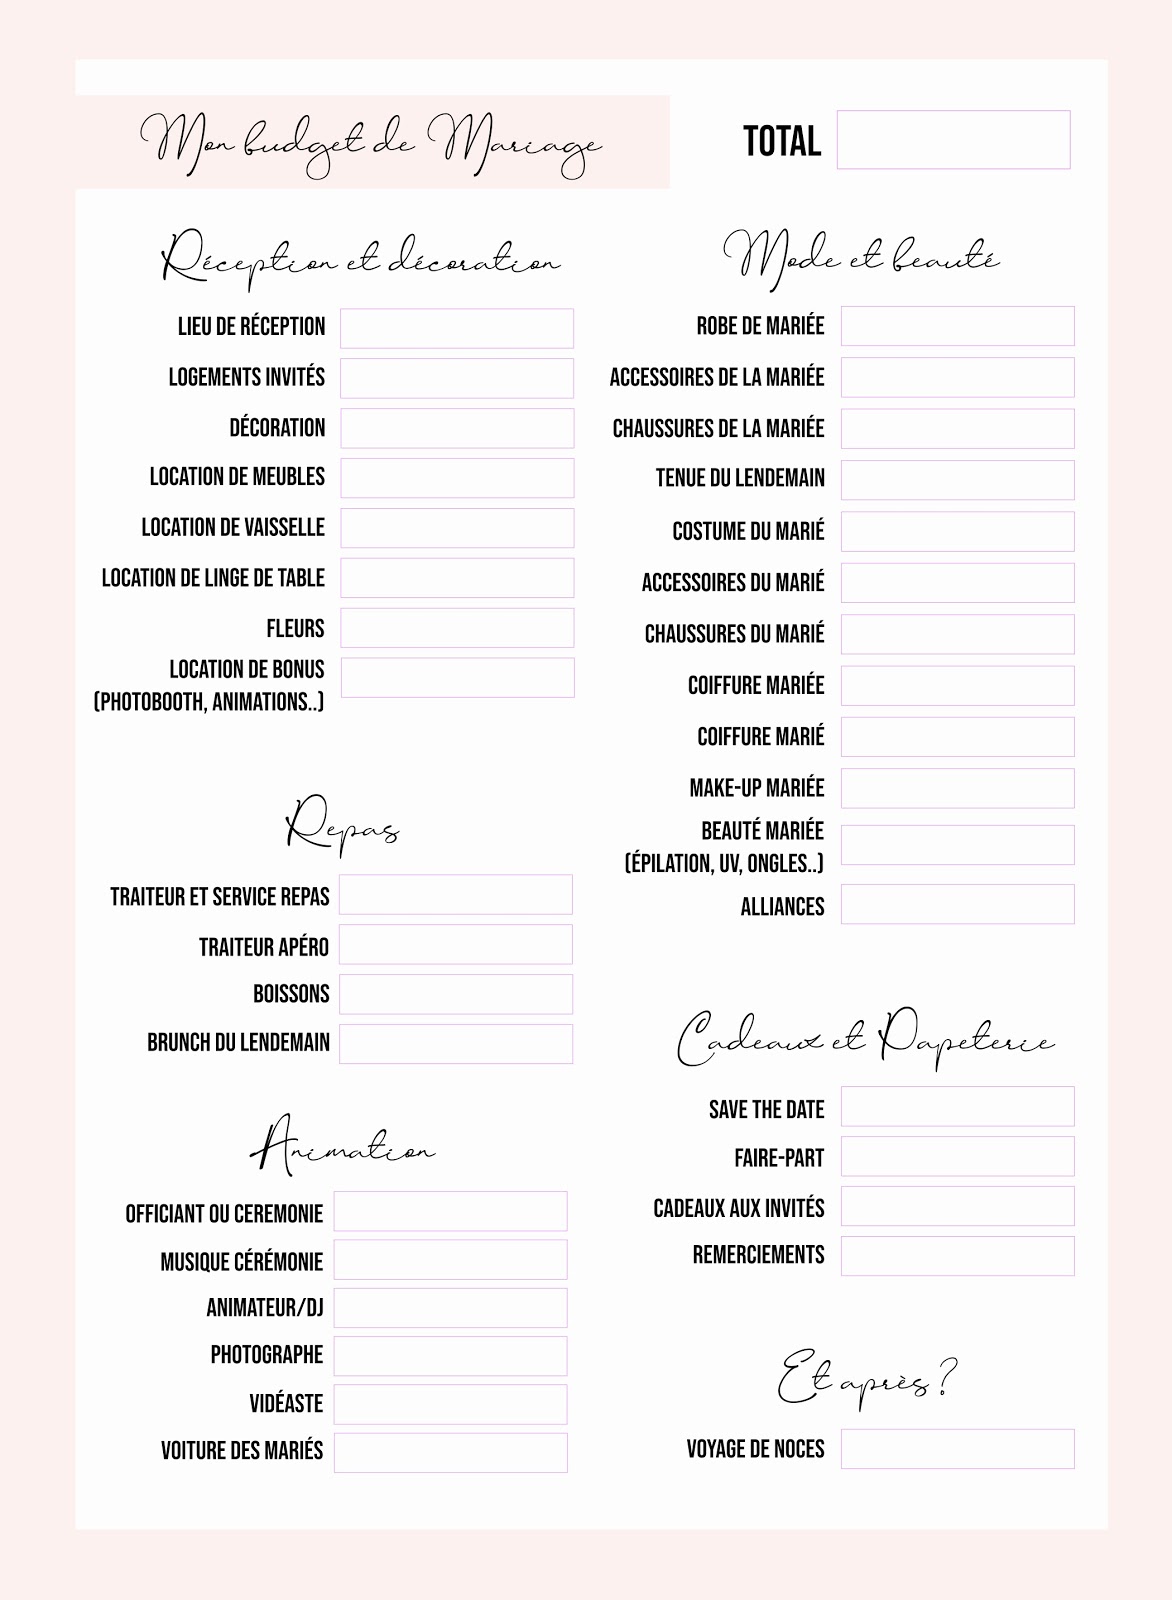 Mon budget de Mariage
TOTAL
Réception et décoration
LIEU DE RÉCEPTION
LOGEMENTS INVITÉS
DÉCORATION
LOCATION DE MEUBLES
LOCATION DE VAISSELLE
LOCATION DE LINGE DE TABLE
FLEURS
LOCATION DE BONUS
(PHOTOBOOTH, ANIMATIONS..)
Repas
TRAITEUR ET SERVICE REPAS
TRAITEUR APÉRO
BOISSONS
BRUNCH DU LENDEMAIN
Animation
OFFICIANT OU CEREMONIE
MUSIQUE CÉRÉMONIE
ANIMATEUR/DJ
PHOTOGRAPHE
VIDÉASTE
VOITURE DES MARIÉS
Mode et beauté
ROBE DE MARIÉE
ACCESSOIRES DE LA MARIÉE
CHAUSSURES DE LA MARIÉE
TENUE DU LENDEMAIN
COSTUME DU MARIÉ
ACCESSOIRES DU MARIÉ
CHAUSSURES DU MARIÉ
COIFFURE MARIÉE
COIFFURE MARIÉ
MAKE-UP MARIÉE
BEAUTÉ MARIÉE
(ÉPILATION, UV, ONGLES..)
ALLIANCES
Cadeaux et Papeterie
SAVE THE DATE
FAIRE-PART
CADEAUX AUX INVITÉS
REMERCIEMENTS
Et après ?
VOYAGE DE NOCES